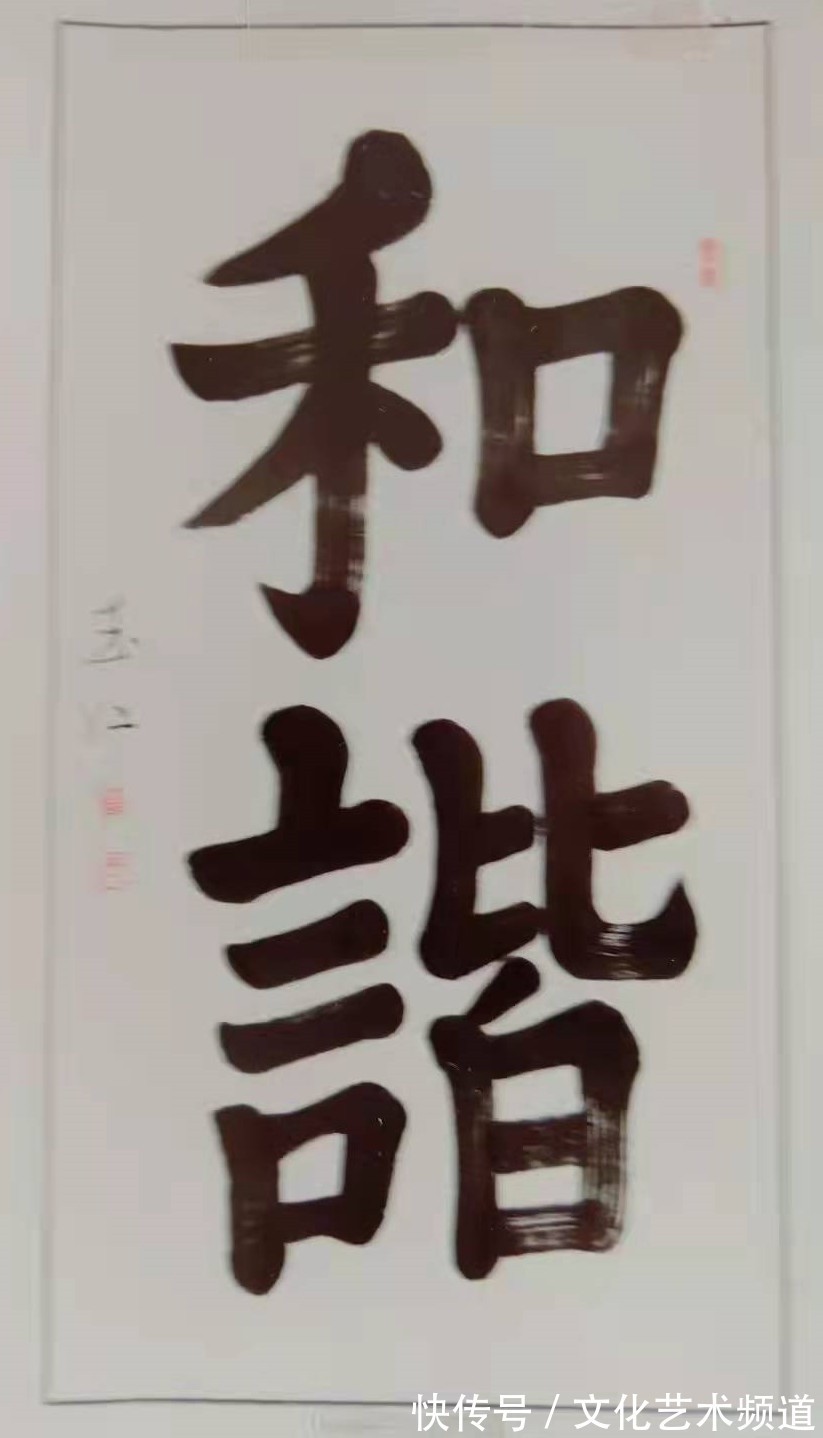 和
諧
快传号 / 文化艺术频道